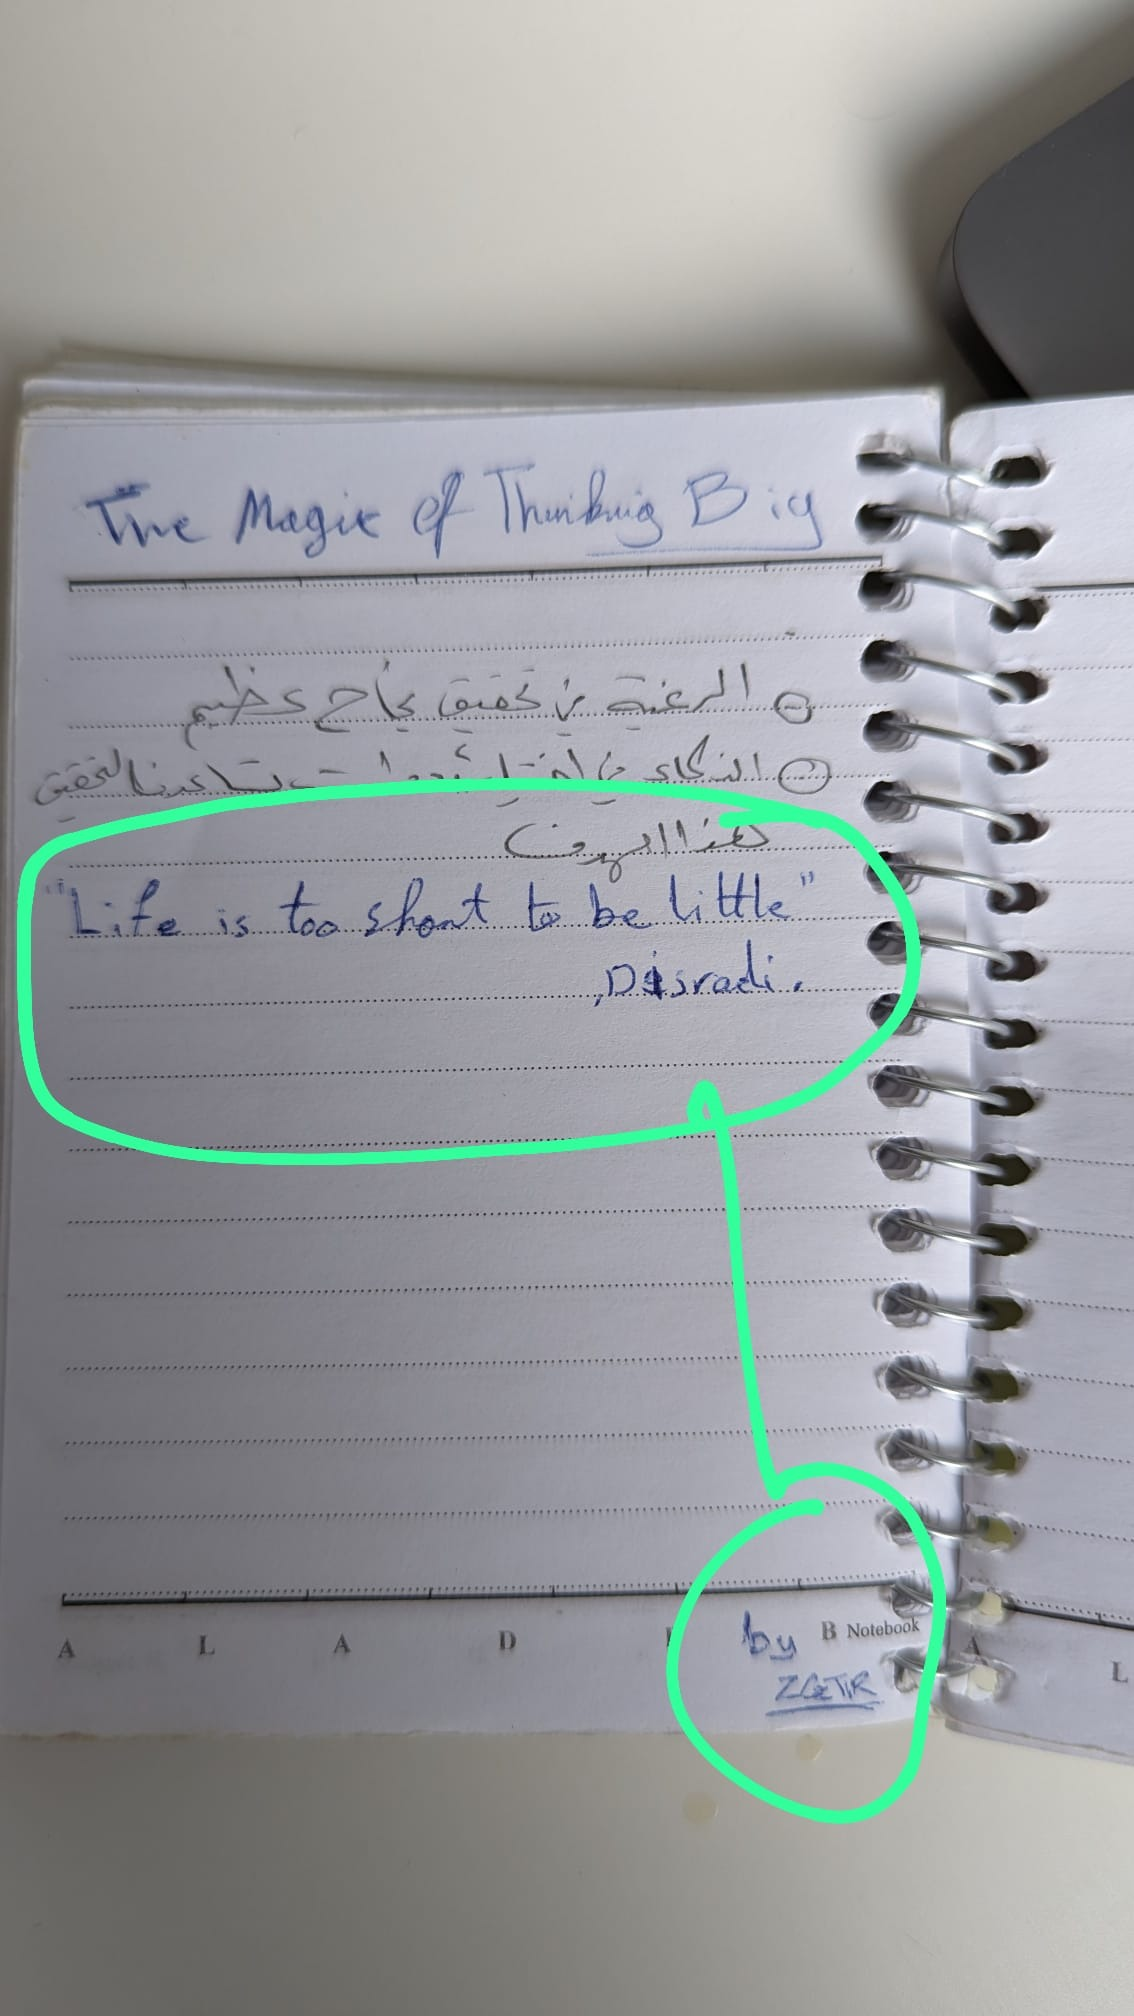 The Magic of Thinking Big
① الرغبة في تحقيق نجاح عظيم
② الذكاء في اختيار أدوات تساعدنا لتحقيق
هذا الهدف
"Life is too short to be little"
, Disradi.
A L A D B Notebook
by
ZGTIR
A
L